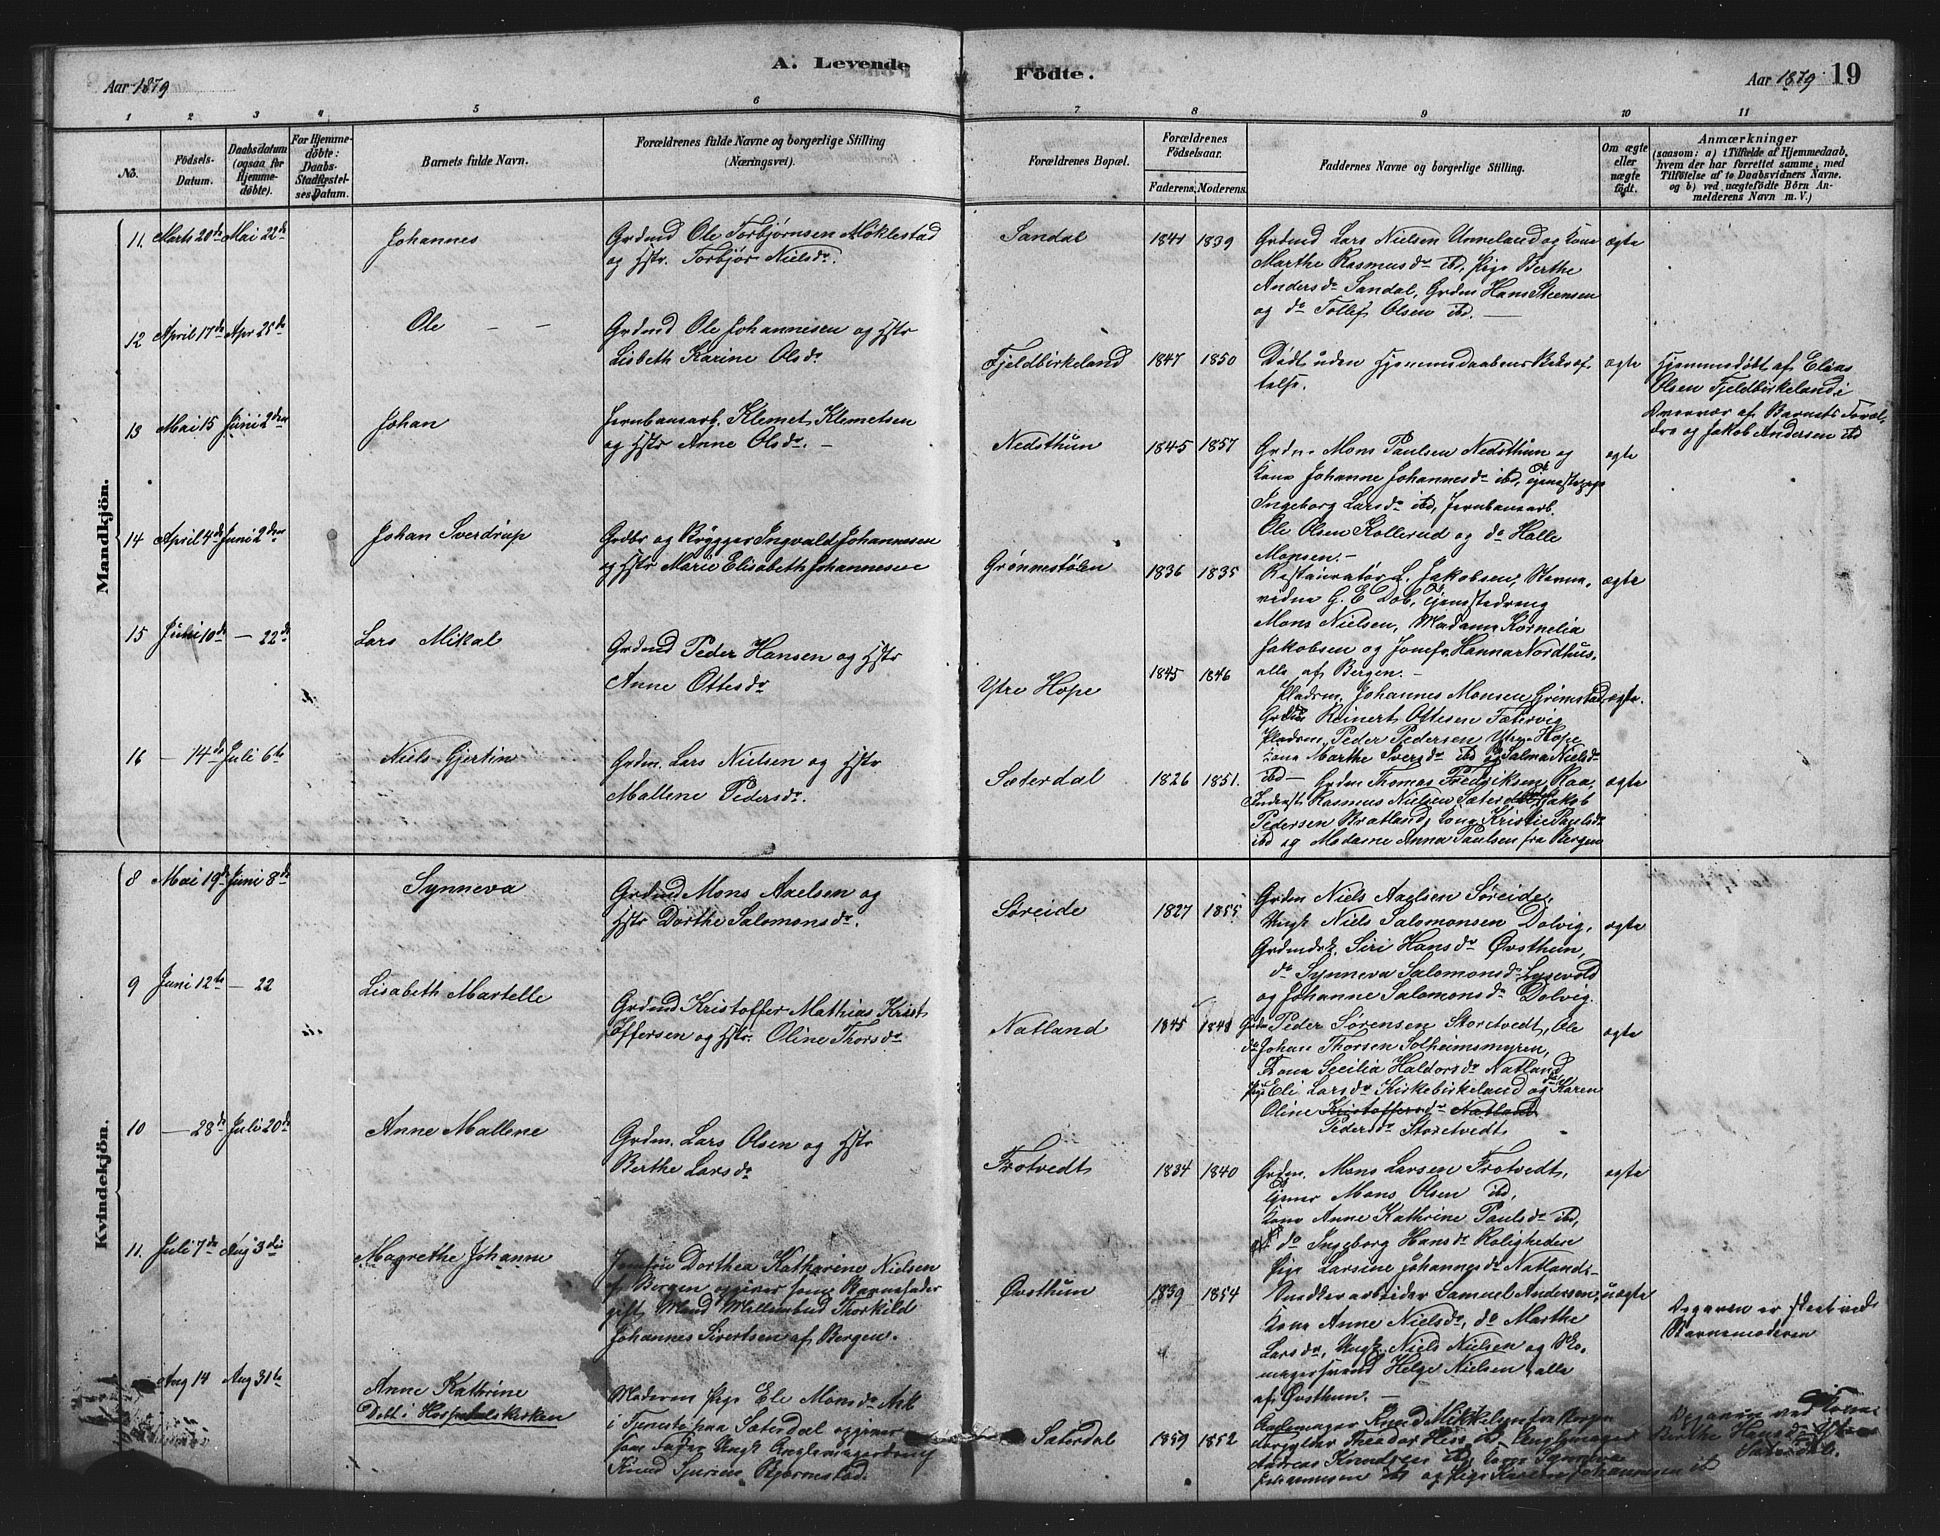 A. Levende Födte.
Aar 1879
Aar 1879. 19
1 2 3 4 5 6 7 8 9 10 11
No.
Födsels-Datum.
Daabsdatum (ogsaa for Hjemmedöbte).
For Hjemmedöbte: Daabs-Stadfestelses-Datum.
Barnets fulde Navn.
Forældrenes fulde Navne og borgerlige Stilling (Næringsvei).
Forældrenes Bopæl.
Forældrenes Födselsaar.
Faderens. Moderens.
Faddernes Navne og borgerlige Stilling.
Om ægte eller uægte födt.
Anmærkninger
(saasom: a) i Tilfælde af Hjemmedaab,
hvem der har forrettet samme, med
Tilföielse af to Daabsvidners Navne.
og b) ved uægtefödte Börn An-
melderens Navn m. V.)
Mandkjön.
11. Marts 20de Mai 22de Johannes
Grdmd Ole Torbjørnsen Møklestad
og Hstr. Torbjør Nielsdr.
Sandal 1841 1839
Grdmd Lars Nielsen Unneland og Kone
Marthe Rasmusdr ibd, Pige Berthe
Andersdr Sandal, Grdm Hans Steensen
og do Tollef Olsen ibd.
ægte
12 April 17de Apr 25de Ole
Grdmd Ole Johannesen og Hstr
Lisbeth Karine Olsdr
Fjeldbirkeland 1847 1850
Dødt uden Hjemmedaabens Bekræf-
telse.
ægte
Hjemmedøbt af Elias
Olsen Fjeldbirkeland i
Overvær af Barnets Foræl-
dre og Jakob Andersen ibd
13 Mai 15 Juni 2den Johan
Jernbanearb. Klemet Klemetsen
og Hstr Anne Olsdr.
Nedsthun 1845 1857
Grdm. Mons Paulsen Nedsthun og
Kone Johanne Johannesdr ibd, Tjenestepige
Ingeborg Larsdr ibd, Jernbanearb.
Ole Olsen Kollerud og do Halle
Monsen.
ægte
14 April 4de Juni 2den Johan Sverdrup
Grdbr og Brygger Ingvald Johannesen
og Hstr Marie Elisabeth Johannesen
Grønnestølen 1836 1835
Restauratør L. Jakobsen,
G. E. Dob, Tjenestedreng
Mons Nielsen, Madam Kornelia
Jakobsen og Jomfr. Hanna Nordhus,
alle af Bergen.
ægte
15 Juni 10de — 22de Lars Mikal
Grdmd Peder Hansen og Hstr
Anne Ottesdr
Ytre Hope 1845 1846
Pladsm. Johannes Monsen Grimstad,
Grdm Reinert Ottesen
Pladsm. Peder Pedersen Ytre-Hope
Kone Marthe Sversdr ibd og Salma Nielsdr
ibd
ægte.
16 — 14de Juli 6te Niels Gjertin
Grdm. Lars Nielsen og Hstr
Mallene Pedersdr.
Sæterdal 1826 1851.
Grdm Thomas Fredriksen Raa,
Inderst Rasmus Nielsen Sæterdal, Jakob
Pedersen Bratland, Kone Kristie Paulsdr
ibd og Madame Anna Paulsen fra Bergen
ægte
Kvindekjön.
8 Mai 19de Juni 8de Synneva
Grdmd Mons Axelsen og
Hstr Dorthe Salomonsdr.
Søreide 1827 1855
Grdm Niels Axelsen Søreide,
Ungk Niels Salomonsen Dolvig,
Siri Hansdr Øvsthun,
do Synneva Salomonsdr Lysevold
og Johanne Salomonsdr Dolvig.
ægte
9 Juni 12te — 22 Lisabeth Martelle
Grdmd Kristoffer Mathias Krist
offersen og Hstr. Oline Thorsdr
Natland 1845 1841
Grdm Peder Sørensen Storetvedt, Ole
Johan Thorsen Solheimsmyren,
Kone Secilia Haldorsdr Natland
Pige Eli Larsdr Kirkebirkeland og do Karen
Oline Kristoffersdr Natland
Pedersdr Storetvedt
ægte
10 — 28de Juli 20de Anne Mallene
Grdm. Lars Olsen og Hstr
Berthe Larsdr
Frotvedt 1834 1840
Grdm. Mons Larsen Frotvedt,
Tjener Mons Olsen ibd,
Kone Anne Kathrine Paulsdr ibd,
do Ingeborg Hansdr Roligheden
Pige Larsine Johannesdr Natland
ægte
11. Juli 7de Aug 3die Magrethe Johanne
Jomfru Dorthea Katharine Nielsen
af Bergen opgiver som Barnefader
gift Mand Thorkild
Johannes Sivertsen af Bergen.
Øvsthun 1839 1854
Snedkerarbeider Samuel Andersen,
Kone Anne Nielsdr, do Marthe
Larsdr, Ungk. Niels Nielsen og
Helge Nielsen, alle
af Øvsthun.
uægte
Opgaven er skeet ved
Barnemoderen
Aug 14 Aug 31te Anne Kathrine
Døbt i Hospitalskirken
Moderen Pige Eli Monsdr Ask
i Tjeneste paa Sæterdal opgiver
som Fader Ungk
Knud Bjørnestad.
Sæterdal 1859 1852
Knud Mikkelsen fra Bergen
Theodor Hess ibd,
Andreas ibd, Kone Synneva
Johannessen ibd og Pige Karen Johannesen ibd
Opgaven ved Kone
Berthe Hansdr Ytre
Sæterdal.